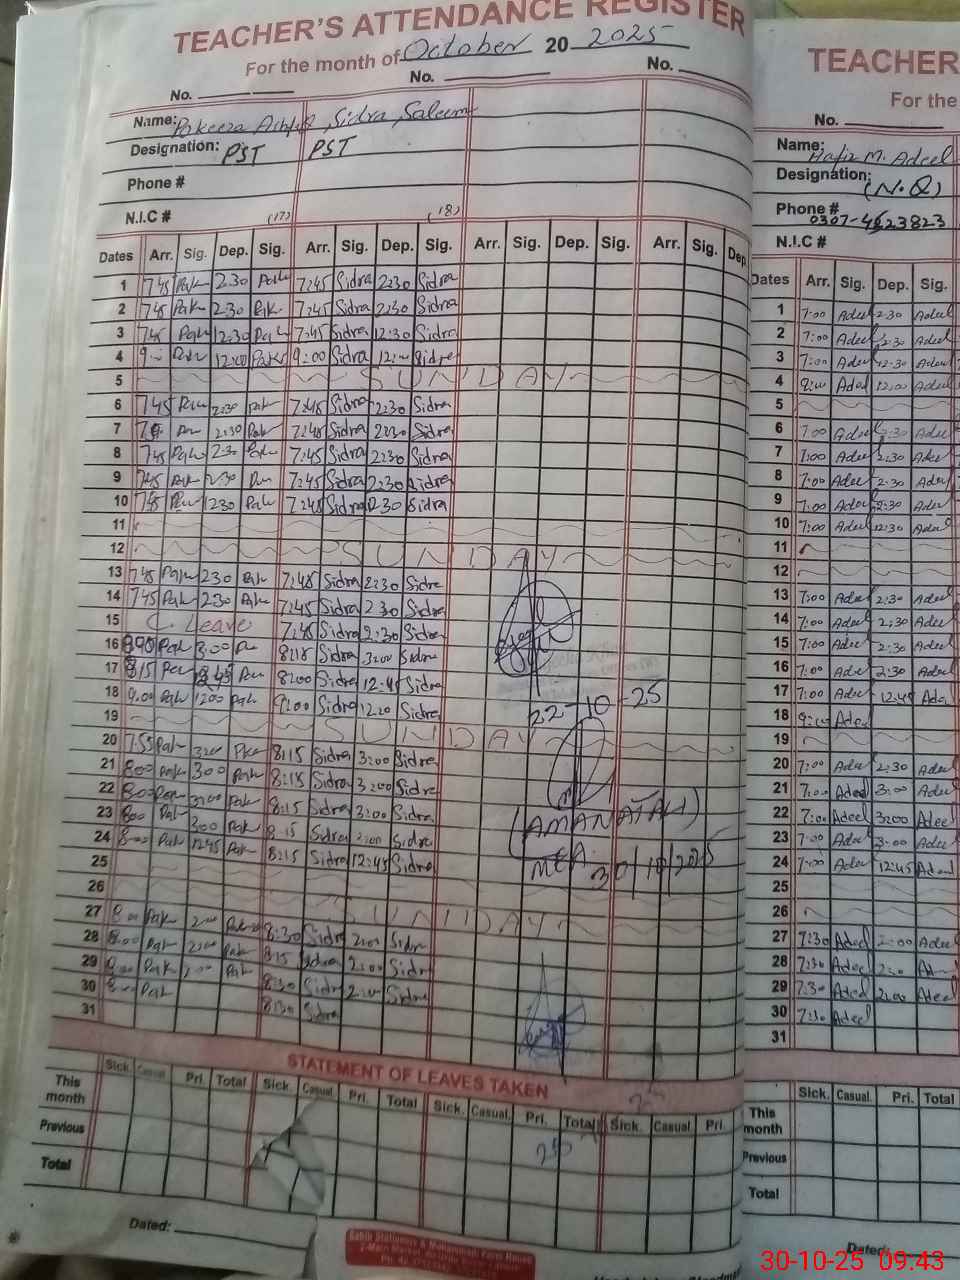 TEACHER'S ATTENDANCE REGISTER
For the month of October 20 2025
No. No. No.
Name: Pakeeza Sidra Saleem
Designation: PST PST
Phone #
N.I.C # (17) (18)
Dates Arr. Sig. Dep. Sig. Arr. Sig. Dep. Sig. Arr. Sig. Dep. Sig. Arr. Sig. Dep.
1 7:45 Pak 2:30 Pak 7:45 Sidra 2:30 Sidra
2 7:45 Pak 2:30 Pak 7:45 Sidra 2:30 Sidra
3 7:45 Pak 12:30 Pak 7:45 Sidra 12:30 Sidra
4 9:00 Pak 12:00 Pak 9:00 Sidra 12:00 Sidra
5 SUNDAY
6 7:45 Pak 2:30 Pak 7:45 Sidra 2:30 Sidra
7 2:30 Pak 7:45 Sidra 2:30 Sidra
8 7:45 Pak 2:30 Pak 7:45 Sidra 2:30 Sidra
9 7:45 Pak 2:30 7:45 Sidra 2:30 Sidra
10 7:45 12:30 Pak 7:45 Sidra 12:30 Sidra
11
12 SUNDAY
13 7:45 Pak 2:30 Pak 7:45 Sidra 2:30 Sidra
14 7:45 Pak 2:30 Pak 7:45 Sidra 2:30 Sidra
15 C. Leave 7:45 Sidra 2:30 Sidra
16 Pak 3:00 8:15 Sidra 3:00 Sidra
17 8:15 12:45 8:00 Sidra 12:45 Sidra
18 9:00 Pak 12:00 Pak 9:00 Sidra 12:20 Sidra
22-10-25
19 SUNDAY
20 7:55 Pak 3:00 Pak 8:15 Sidra 3:00 Sidra
21 8:00 Pak 3:00 Pak 8:15 Sidra 3:00 Sidra
22 8:00 Pak 3:00 Pak 8:15 Sidra 3:00 Sidra
23 8:00 Pak 3:00 Pak 8:15 Sidra 3:00 Sidra
(AMANATALI)
24 8:00 Pak 12:45 Pak 8:15 Sidra 12:45 Sidra
MEA 30/10/2025
25
26 SUNDAY
27 8:00 Pak 2:00 8:30 Sidra 2:00 Sidra
28 8:00 Pak 2:00 Pak 8:15 Sidra 2:00 Sidra
29 8:00 Pak 2:00 Pak 8:30 Sidra 2:00 Sidra
30 8:00 Pak 8:30 Sidra
31
STATEMENT OF LEAVES TAKEN
Sick. Casual. Pri. Total Sick. Casual. Pri. Total Sick. Casual. Pri. Total Sick. Casual. Pri.
This month
Previous
Total
Dated:
TEACHER
For the
No.
Name: Hafiz M. Adeel
Designation: (N.Q)
Phone # 0307-4623823
N.I.C #
Dates Arr. Sig. Dep. Sig.
1 7:00 Adeel 2:30 Adeel
2 7:00 Adeel 2:30 Adeel
3 7:00 Adeel 12:30 Adeel
4 9:00 Adeel 12:00 Adeel
5
6 7:00 Adeel 2:30 Adeel
7 7:00 Adeel 2:30 Adeel
8 7:00 Adeel 2:30 Adeel
9 7:00 Adeel 2:30 Adeel
10 7:00 Adeel 12:30 Adeel
11
12
13 7:00 Adeel 2:30 Adeel
14 7:00 Adeel 2:30 Adeel
15 7:00 Adeel 2:30 Adeel
16 7:00 Adeel 2:30 Adeel
17 7:00 Adeel 12:45 Adeel
18 9:00 Adeel
19
20 7:00 Adeel 2:30 Adeel
21 7:00 Adeel 3:00 Adeel
22 7:00 Adeel 3:00 Adeel
23 7:00 Adeel 3:00 Adeel
24 7:00 Adeel 12:45 Adeel
25
26
27 7:30 Adeel 2:00 Adeel
28 7:30 Adeel Adeel
29 7:30 Adeel 2:00 Adeel
30 7:30 Adeel
31
Sick. Casual. Pri. Total
This month
Previous
Total
Dated:
30-10-25 09:43